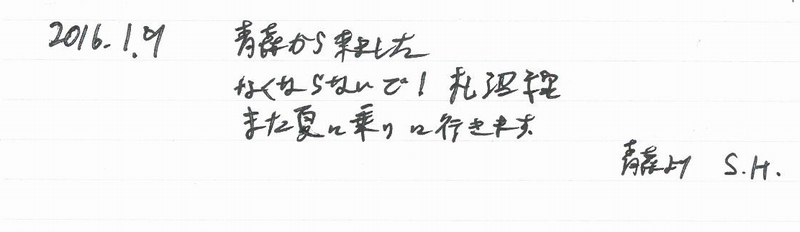 2016.1.9 青森から来ました
なくならないで！札沼線
また夏に乗りに行きます。
青森より S.H.